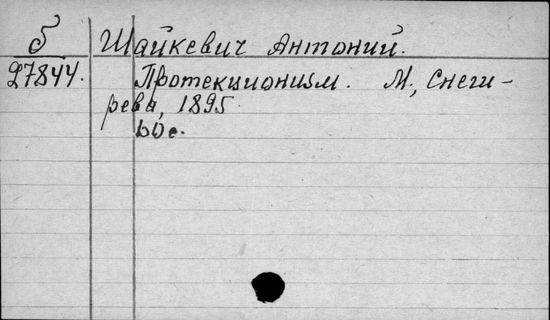 б Шайкевич Антоний.
27844. Протекционизм. М., Снеги-
рева, 1895.
60 с.